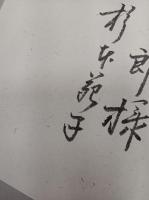 郎様
杉本苑子